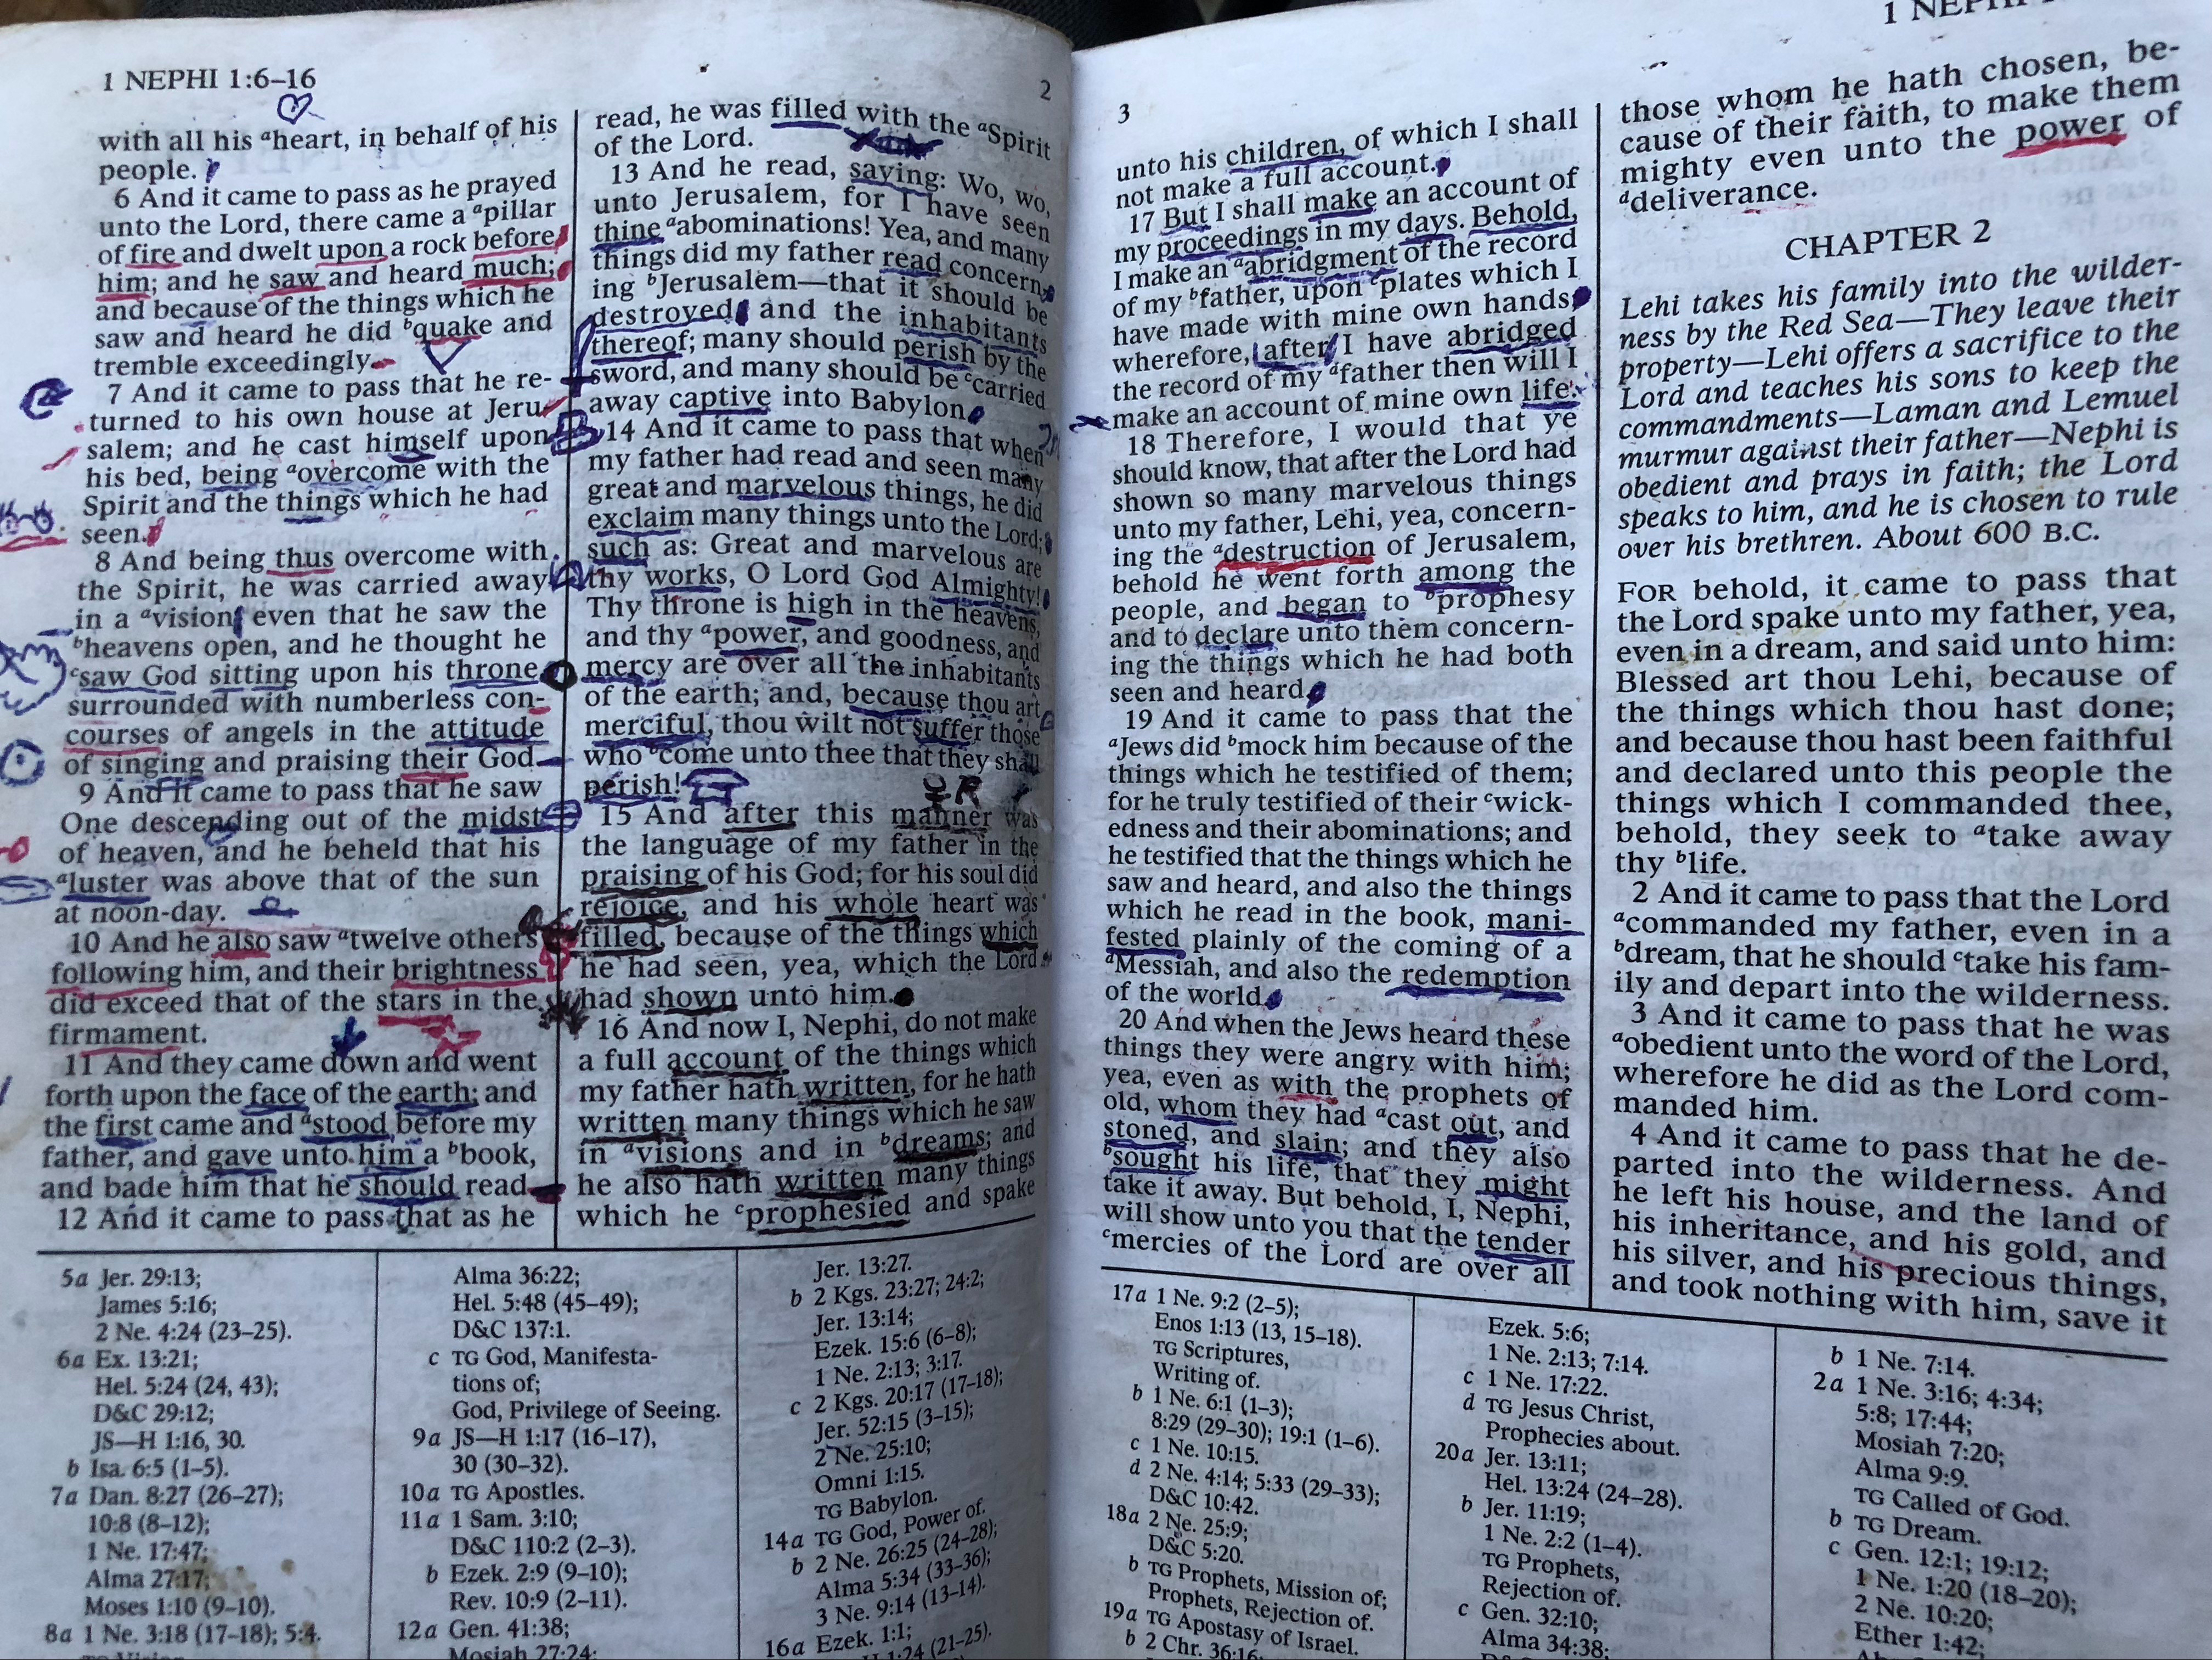 1 NEPHI 1:6–16
2
with all his ᵃheart, in behalf of his
people.
6 And it came to pass as he prayed
unto the Lord, there came a ᵃpillar
of fire and dwelt upon a rock before
him; and he saw and heard much;
and because of the things which he
saw and heard he did ᵇquake and
tremble exceedingly.
7 And it came to pass that he re-
turned to his own house at Jeru-
salem; and he cast himself upon
his bed, being ᵃovercome with the
Spirit and the things which he had
seen.
8 And being thus overcome with
the Spirit, he was carried away
in a ᵃvision, even that he saw the
ᵇheavens open, and he thought he
ᶜsaw God sitting upon his throne,
surrounded with numberless con-
courses of angels in the attitude
of singing and praising their God.
9 And it came to pass that he saw
One descending out of the midst
of heaven, and he beheld that his
ᵃluster was above that of the sun
at noon-day.
10 And he also saw ᵃtwelve others
following him, and their brightness
did exceed that of the stars in the
firmament.
11 And they came down and went
forth upon the face of the earth; and
the first came and ᵃstood before my
father, and gave unto him a ᵇbook,
and bade him that he should read.
12 And it came to pass that as he
read, he was filled with the ᵃSpirit
of the Lord.
13 And he read, saying: Wo, wo,
unto Jerusalem, for I have seen
thine ᵃabominations! Yea, and many
things did my father read concern-
ing ᵇJerusalem—that it should be
destroyed, and the inhabitants
thereof; many should perish by the
sword, and many should be ᶜcarried
away captive into Babylon.
14 And it came to pass that when
my father had read and seen many
great and marvelous things, he did
exclaim many things unto the Lord;
such as: Great and marvelous are
thy works, O Lord God Almighty!
Thy throne is high in the heavens,
and thy ᵃpower, and goodness, and
mercy are over all the inhabitants
of the earth; and, because thou art
merciful, thou wilt not suffer those
who ᵇcome unto thee that they shall
perish!
R
15 And after this manner was
the language of my father in the
praising of his God; for his soul did
rejoice, and his whole heart was
filled, because of the things which
he had seen, yea, which the Lord
had shown unto him.
16 And now I, Nephi, do not make
a full account of the things which
my father hath written, for he hath
written many things which he saw
in ᵃvisions and in ᵇdreams; and
he also hath written many things
which he ᶜprophesied and spake
5a Jer. 29:13;
James 5:16;
2 Ne. 4:24 (23–25).
6a Ex. 13:21;
Hel. 5:24 (24, 43);
D&C 29:12;
JS—H 1:16, 30.
b Isa. 6:5 (1–5).
7a Dan. 8:27 (26–27);
10:8 (8–12);
1 Ne. 17:47;
Alma 27:17;
Moses 1:10 (9–10).
8a 1 Ne. 3:18 (17–18); 5:4.
Alma 36:22;
Hel. 5:48 (45–49);
D&C 137:1.
c TG God, Manifesta-
tions of;
God, Privilege of Seeing.
9a JS—H 1:17 (16–17),
30 (30–32).
10a TG Apostles.
11a 1 Sam. 3:10;
D&C 110:2 (2–3).
b Ezek. 2:9 (9–10);
Rev. 10:9 (2–11).
12a Gen. 41:38;
Mosiah 27:24;
Jer. 13:27.
b 2 Kgs. 23:27; 24:2;
Jer. 13:14;
Ezek. 15:6 (6–8);
1 Ne. 2:13; 3:17.
c 2 Kgs. 20:17 (17–18);
Jer. 52:15 (3–15);
2 Ne. 25:10;
Omni 1:15.
TG Babylon.
14a TG God, Power of.
b 2 Ne. 26:25 (24–28);
Alma 5:34 (33–36);
3 Ne. 9:14 (13–14).
16a Ezek. 1:1;
1:24 (21–25).
3
1 NEPHI
unto his children, of which I shall
not make a full account.
17 But I shall make an account of
my proceedings in my days. Behold,
I make an ᵃabridgment of the record
of my ᵇfather, upon ᶜplates which I
have made with mine own hands;
wherefore, after I have abridged
the record of my ᵈfather then will I
make an account of mine own life.
18 Therefore, I would that ye
should know, that after the Lord had
shown so many marvelous things
unto my father, Lehi, yea, concern-
ing the ᵃdestruction of Jerusalem,
behold he went forth among the
people, and began to ᵇprophesy
and to declare unto them concern-
ing the things which he had both
seen and heard.
19 And it came to pass that the
ᵃJews did ᵇmock him because of the
things which he testified of them;
for he truly testified of their ᶜwick-
edness and their abominations; and
he testified that the things which he
saw and heard, and also the things
which he read in the book, mani-
fested plainly of the coming of a
ᵈMessiah, and also the redemption
of the world.
20 And when the Jews heard these
things they were angry with him;
yea, even as with the prophets of
old, whom they had ᵃcast out, and
stoned, and slain; and they also
ᵇsought his life, that they might
take it away. But behold, I, Nephi,
will show unto you that the tender
ᶜmercies of the Lord are over all
those whom he hath chosen, be-
cause of their faith, to make them
mighty even unto the power of
ᵈdeliverance.
CHAPTER 2
Lehi takes his family into the wilder-
ness by the Red Sea—They leave their
property—Lehi offers a sacrifice to the
Lord and teaches his sons to keep the
commandments—Laman and Lemuel
murmur against their father—Nephi is
obedient and prays in faith; the Lord
speaks to him, and he is chosen to rule
over his brethren. About 600 B.C.
FOR behold, it came to pass that
the Lord spake unto my father, yea,
even in a dream, and said unto him:
Blessed art thou Lehi, because of
the things which thou hast done;
and because thou hast been faithful
and declared unto this people the
things which I commanded thee,
behold, they seek to ᵃtake away
thy ᵇlife.
2 And it came to pass that the Lord
ᵃcommanded my father, even in a
ᵇdream, that he should ᶜtake his fam-
ily and depart into the wilderness.
3 And it came to pass that he was
ᵃobedient unto the word of the Lord,
wherefore he did as the Lord com-
manded him.
4 And it came to pass that he de-
parted into the wilderness. And
he left his house, and the land of
his inheritance, and his gold, and
his silver, and his precious things,
and took nothing with him, save it
17a 1 Ne. 9:2 (2–5);
Enos 1:13 (13, 15–18).
TG Scriptures,
Writing of.
b 1 Ne. 6:1 (1–3);
8:29 (29–30); 19:1 (1–6).
c 1 Ne. 10:15.
d 2 Ne. 4:14; 5:33 (29–33);
D&C 10:42.
18a 2 Ne. 25:9;
D&C 5:20.
b TG Prophets, Mission of;
Prophets, Rejection of.
19a TG Apostasy of Israel.
b 2 Chr. 36:16
Ezek. 5:6;
1 Ne. 2:13; 7:14.
c 1 Ne. 17:22.
d TG Jesus Christ,
Prophecies about.
20a Jer. 13:11;
Hel. 13:24 (24–28).
b Jer. 11:19;
1 Ne. 2:2 (1–4).
TG Prophets,
Rejection of.
c Gen. 32:10;
Alma 34:38;
b 1 Ne. 7:14.
2a 1 Ne. 3:16; 4:34;
5:8; 17:44;
Mosiah 7:20;
Alma 9:9.
TG Called of God.
b TG Dream.
c Gen. 12:1; 19:12;
1 Ne. 1:20 (18–20);
2 Ne. 10:20;
Ether 1:42;